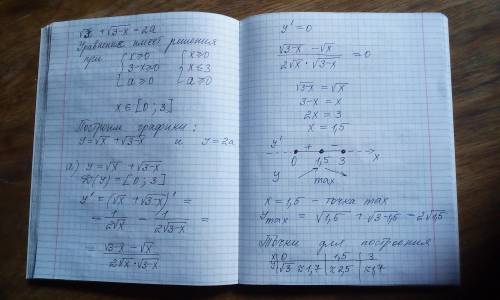 √x + √3-x = 2a
Уравнение имеет решения
при { x≥0 { x≥0
3-x≥0 x≤3
a≥0 a≥0
x ∈ [0; 3]
Построим графики:
y=√x+√3-x и y=2a
а) y=√x + √3-x
D(y) = [0; 3]
y' = (√x + √3-x)' =
= 1/2√x - 1/2√3-x =
= √3-x - √x / 2√x·√3-x
y'=0
√3-x - √x / 2√x·√3-x = 0
√3-x = √x
3-x = x
2x = 3
x = 1,5
y' + -
0 1,5 3 x
y max
x = 1,5 - точка max
y max = √1,5 + √3-1,5 = 2√1,5
Точки для построения
x 0 | 1,5 | 3
y √3 ≈ 1,7 | ≈ 2,5 | ≈ 1,7